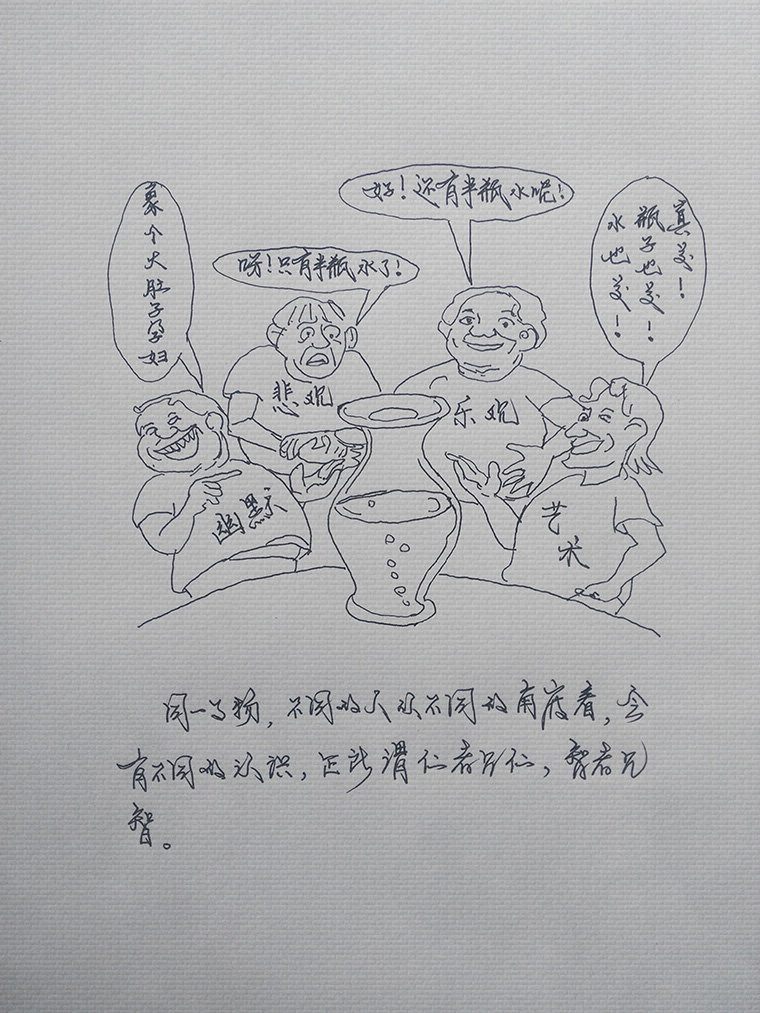 象个大肚子孕妇
呀！只有半瓶水了！
好！还有半瓶水呢！
真美！
瓶子也美！
水也美！
幽默
悲观
乐观
艺术
同一事物，不同的人从不同的角度看，会
有不同的认识，正所谓仁者见仁，智者见
智。